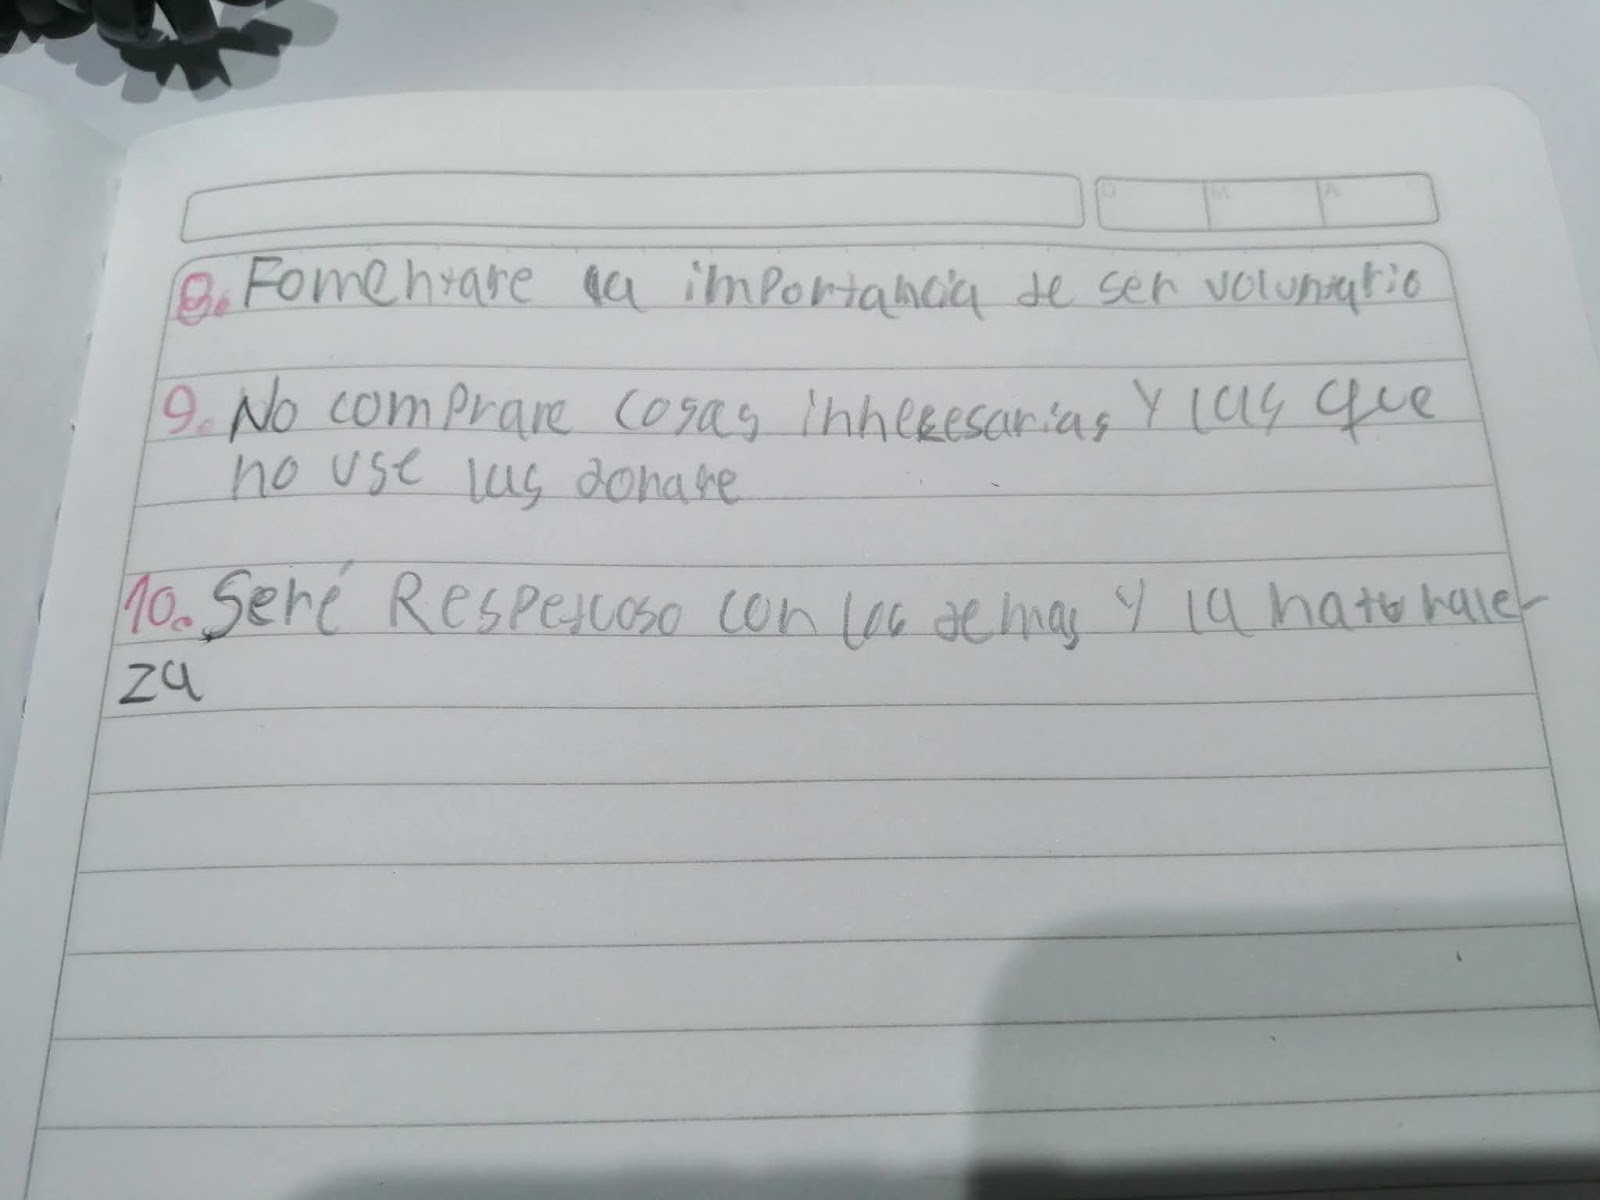 D M A
8. Fomentare la importancia de ser voluntario
9. No comprare cosas innesesarias y las que
no use las donare
10. Seré Respetuoso con los demas y la naturale-
za